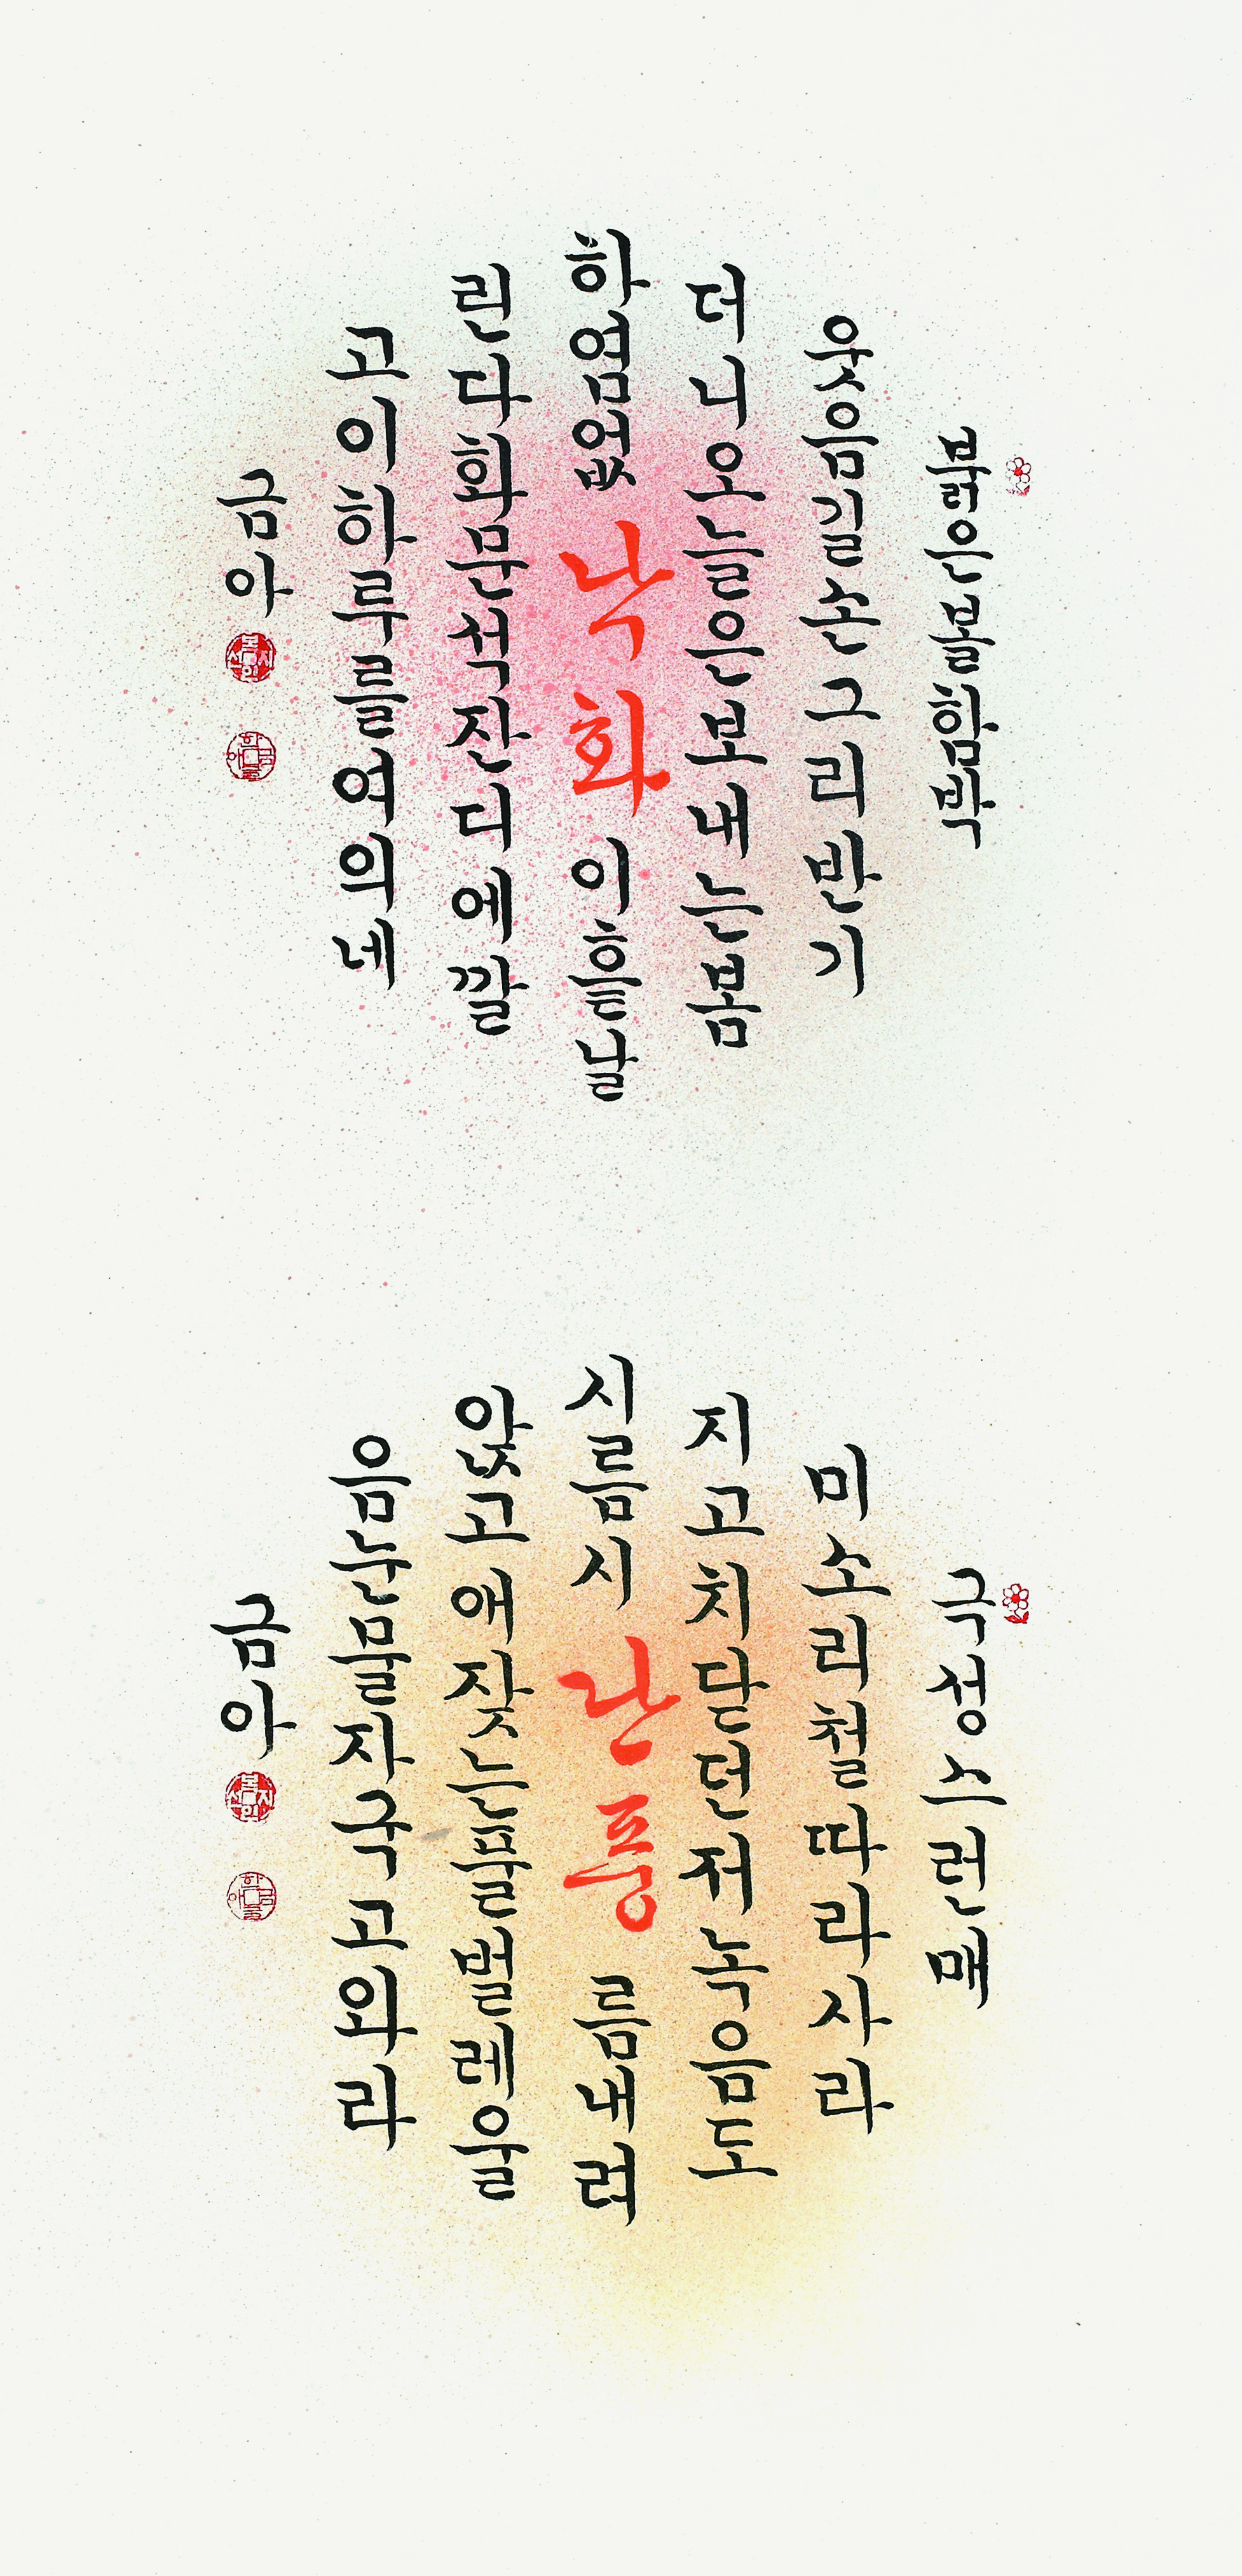 붉은볼함박
웃음길손그리반기
더니오늘은보내는봄
하염없낙화이흩날
린다화문석잔디에깔
고이하루를여의네
금아
극성스런매
미소리철따라사라
지고치닫던저녹음도
시름시단풍름내려
앉고애잣는풀벌레울
음눈물자국고와라
금아